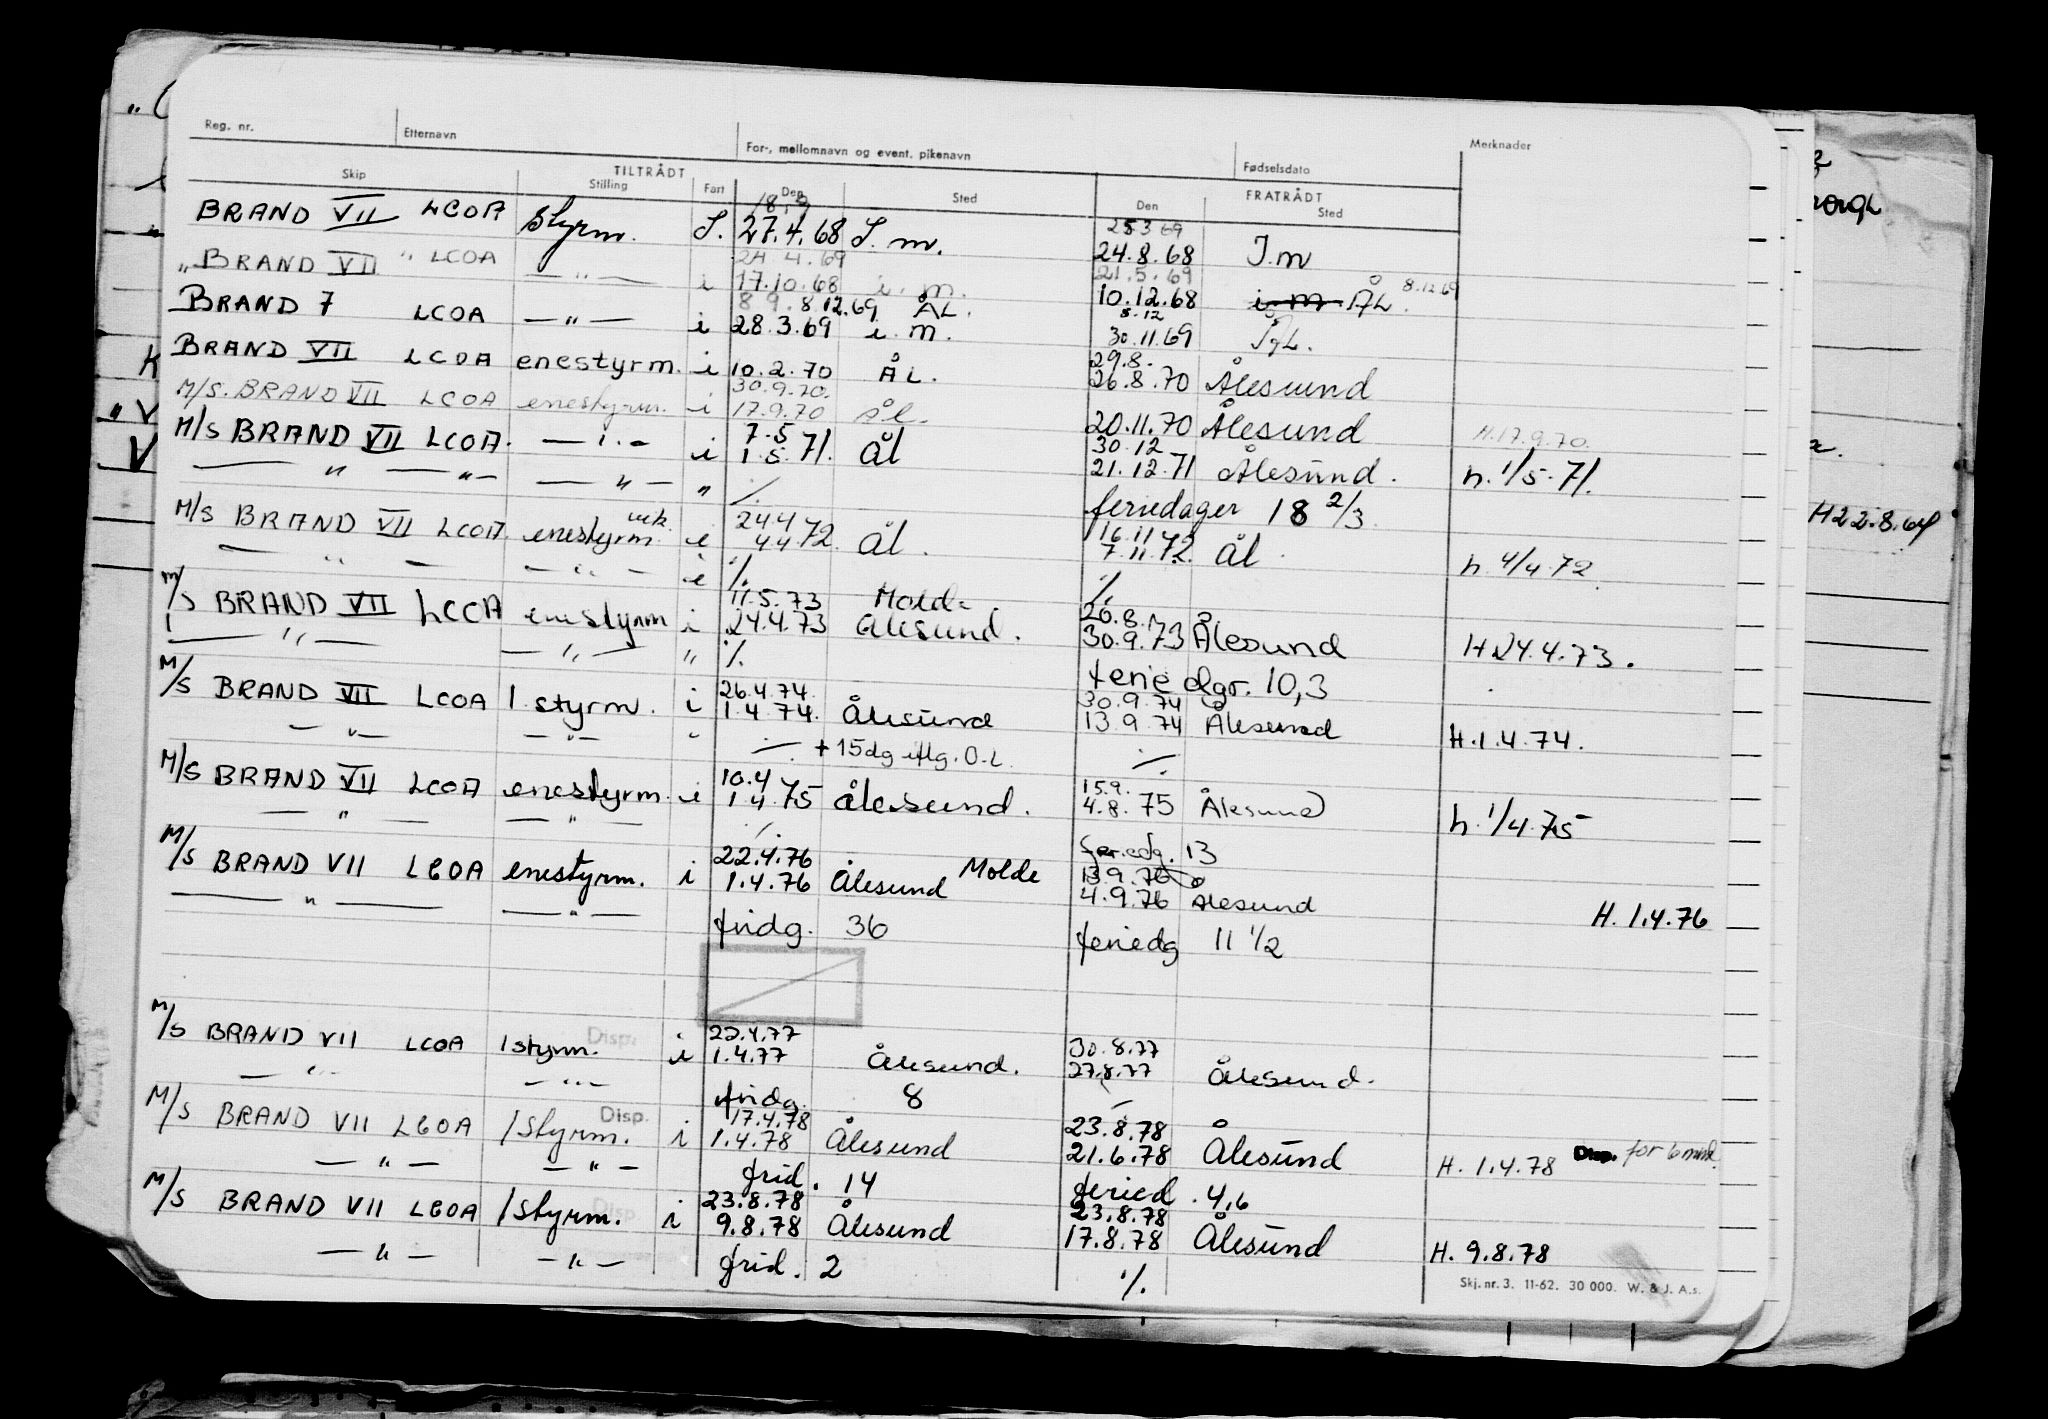 Reg. nr. Etternavn For-, mellomnavn og event. pikenavn Fødselsdato Merknader
TILTRÅDT FRATRÅDT
Skip Stilling Fart Den Sted Den Sted
18.9 25 3 69
BRAND VII LCOA styrm. I. 27.4.68 I. m. 24.8.68 I.m
24.4.69 21.5.69
„BRAND VII " LCOA — " — i 17.10.68 i. m. 10.12.68 i m ÅL. 8.12.69
8.9. 8.12.69 ÅL. 8.12
BRAND 7 LCOA — " — i 28.3.69 i. m. 30.11.69
29.8.
BRAND VII LCOA enestyrm. i 10.2.70 ÅL. 26.8.70 Ålesund
30.9.70.
M/S. BRAND VII LCOA enestyrm. i 17.9.70 ål. 20.11.70 Ålesund H.17.9.70.
7.5 30.12
M/S BRAND VII LCOA. — " — i 1.5.71. Ål 21.12.71 Ålesund. h. 1/5.71.
— " — " — — " — " ./. feriedager 18 2/3
24.4 16.11
M/S BRAND VII LCOA. enestyrm. i 4.4 72. Ål. 7.11.72. Ål h. 4/4.72.
— " — — " — i ./. ./.
11.5.73 Molde 26.8.
M/S BRAND VII LCOA enestyrm i 24.4.73 Ålesund. 30.9.73 Ålesund H 24.4.73.
— " — — " — " ./. ferie dgr. 10,3
26.4.74. 30.9.74
M/S BRAND VII LCOA 1. styrm. i 1.4.74. Ålesund 13.9.74 Ålesund H.1.4.74.
— " — — " — " ./. + 15dg iflg. O.L. ./.
10.4 15.9.
M/S BRAND VII LCOA enestyrm. i 1.4.75 Ålesund. 4.8.75 Ålesund h. 1/4.75
— " — — " — ./. feriedg. 13
22.4.76 Molde 13.9.76
M/S BRAND VII LCOA enestyrm. i 1.4.76 Ålesund 4.9.76 Ålesund H. 1.4.76
— " — — " — fridg. 36 feriedg 11 1/2
Disp. i 22.4.77 30.8.77
M/S BRAND VII LCOA 1styrm. i 1.4.77 Ålesund. 27.8.77 Ålesund.
— " — — " — fridg. 8 ./.
Disp. 17.4.78 23.8.78
M/S BRAND VII LCOA 1styrm. i 1.4.78 Ålesund 21.6.78 Ålesund H. 1.4.78 Disp. for 6 mnd.
— " — — " — frid. 14 feried. 4,6
Disp. 23.8.78 23.8.78
M/S BRAND VII LCOA 1styrm. i 9.8.78 Ålesund 17.8.78 Ålesund H. 9.8.78
— " — — " — frid. 2 ./.
Skj. nr. 3. 11-62. 30 000. W. & J. A.s.
H22.8.64